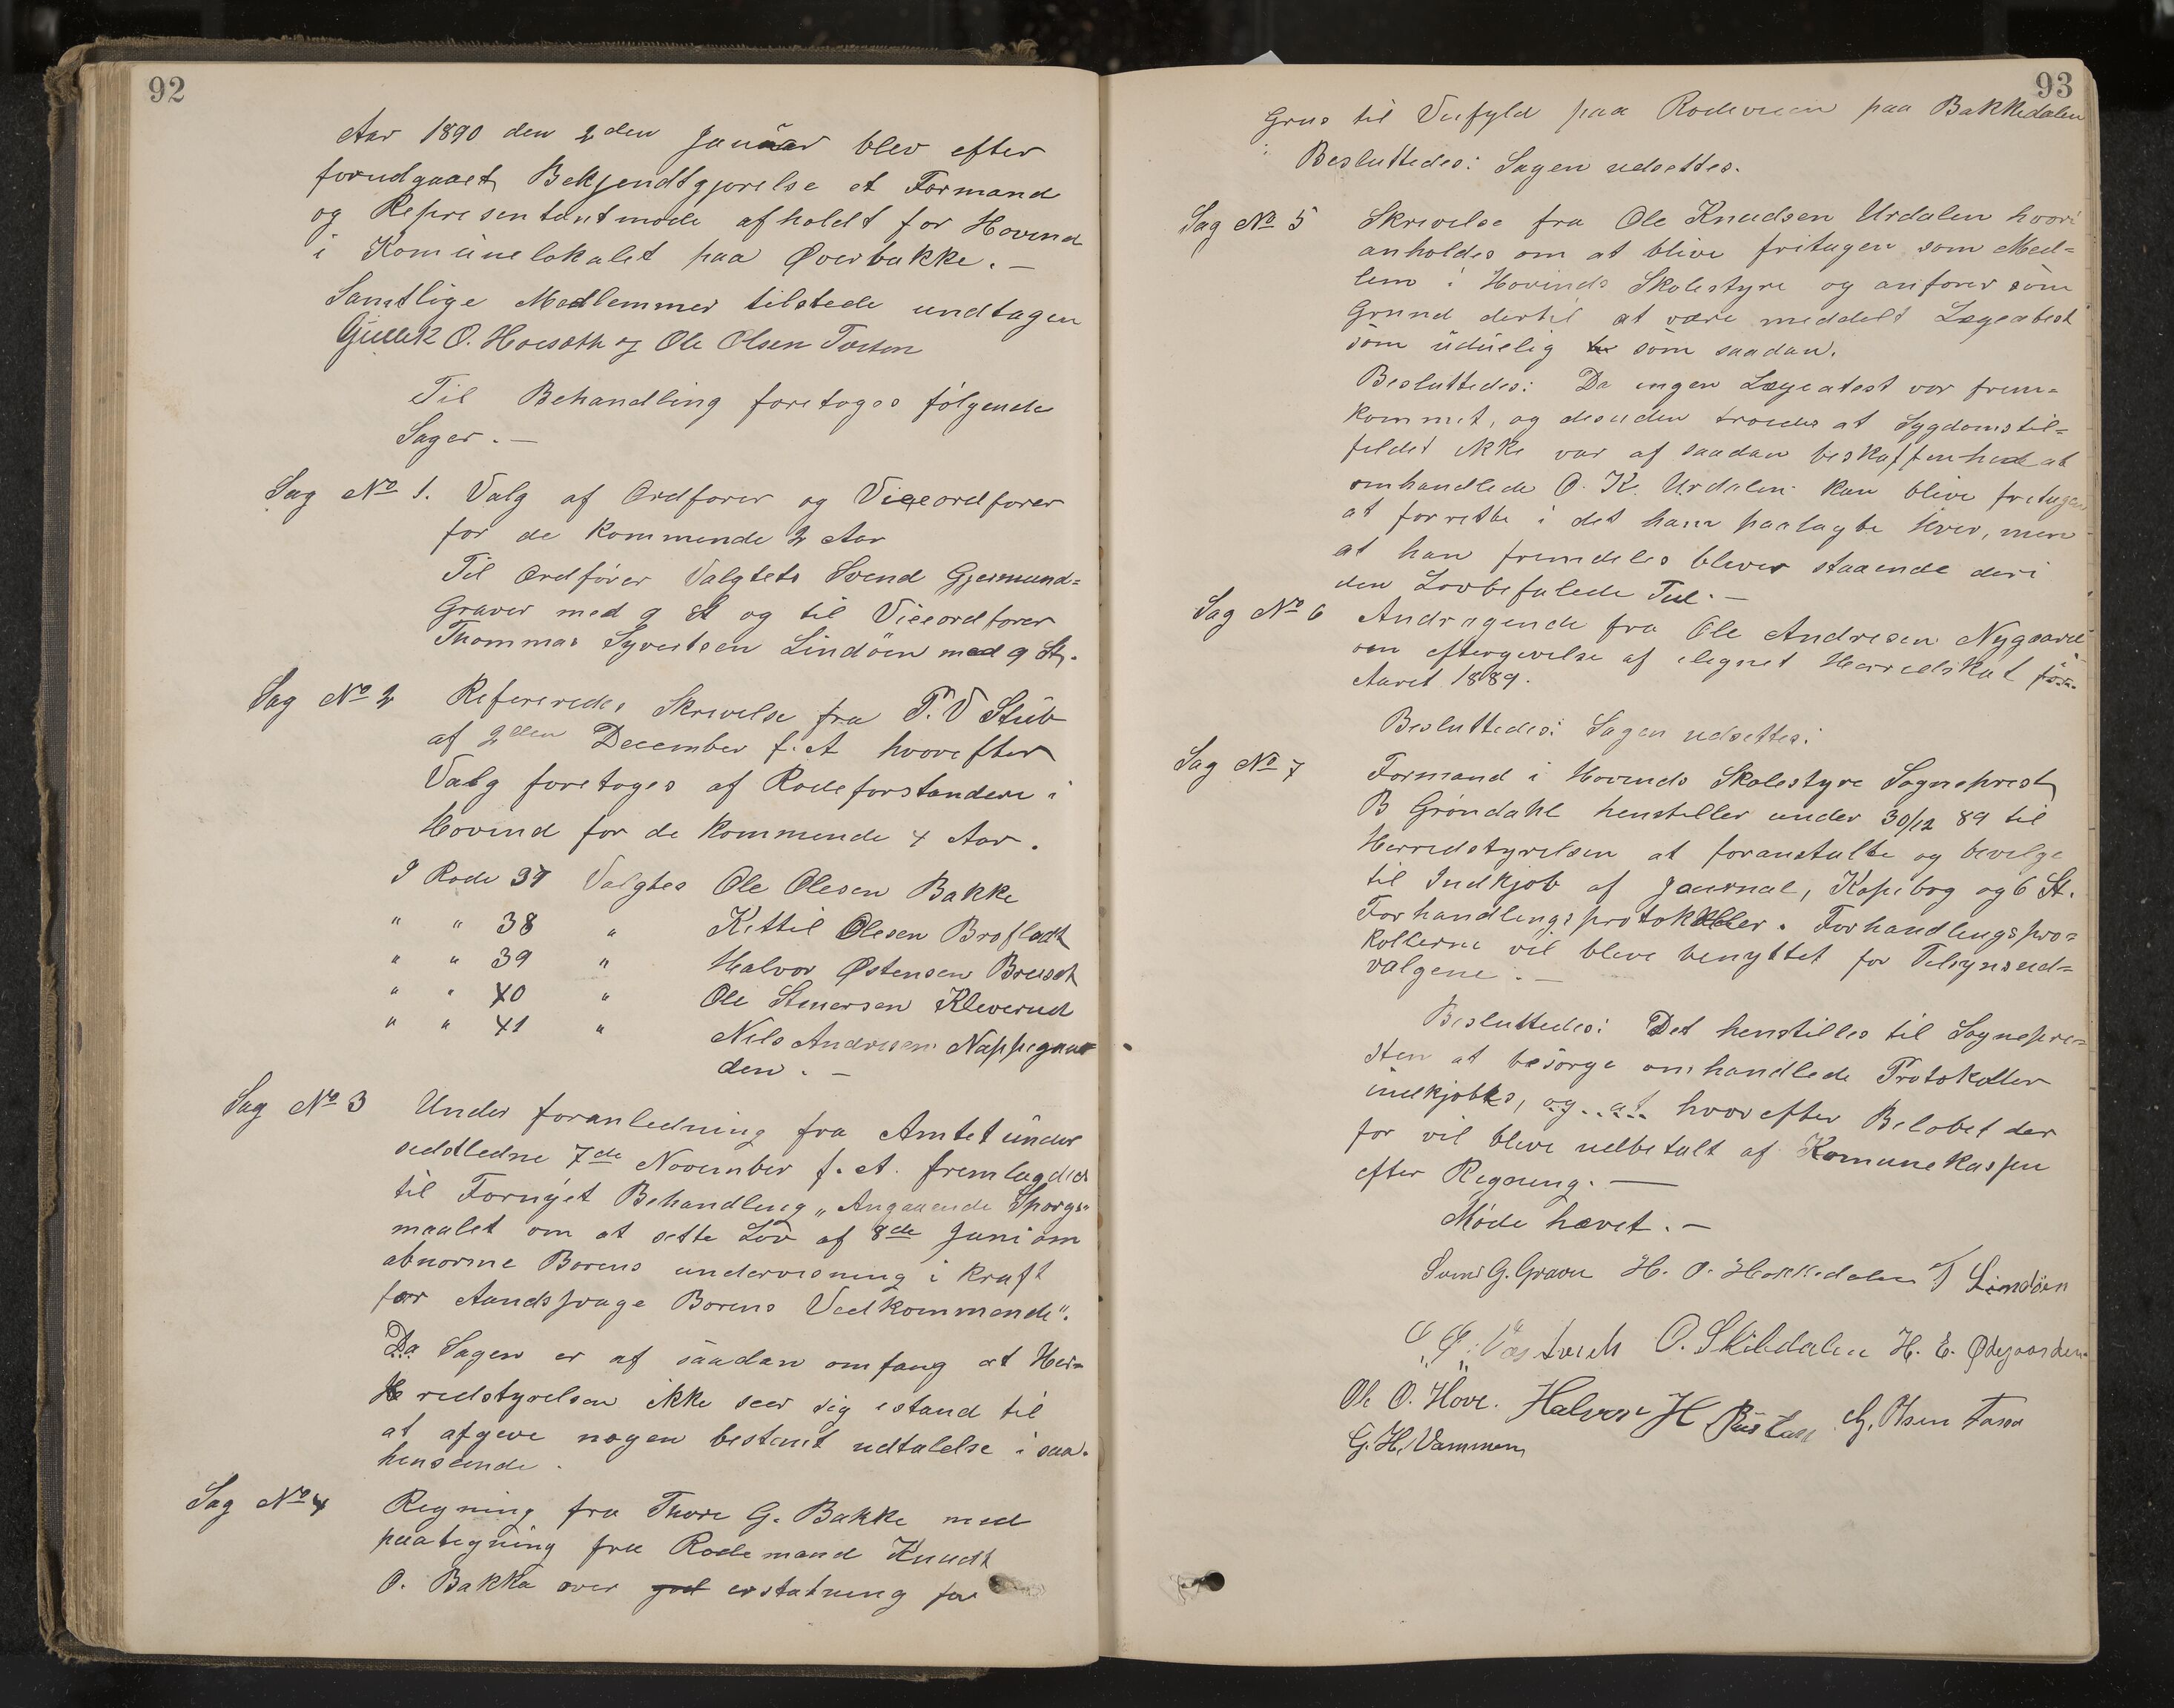 92
Aar 1890 den 2den Januar blev efter
forudgaaet Bekjendtgjørelse et Formand
og Representantmøde afholdt for Hovind
i Komünelokalet paa Øverbakke. —
Samtlige Medlemmer tilstede undtagen
Gullek O. Haesath og Ole Olsen
Til Behandling foretoges følgende
Sager. —
Sag No 1. Valg af Ordfører og Viceordfører
for de kommende 2 Aar
Til Ordfører Valgtets Svend Gjermund-
Graver med 9 St og til Viceordfører
Thommas Syvertsen Lindöen med 9 St.
Sag No 2 Refereredes Skrivelse fra P. V Stüb
af 2den December f. A hvorefter
Valg foretoges af Rodeforstandere i
Hovind for de kommende 4 Aar.
I Rode 37 Valgtes Ole Olesen Bakke
" " 38 " Kittil Olesen Brofladt
" " 39 " Halvor Østensen
" " 40 " Ole Stenersen Kleverud
" " 41 " Nils Andresen Nappegaar=
den. —
Sag No 3 Under foranledning fra Amtet ünder
sidstledne 7de November f. A. fremlagdes
til Fornÿet Behandling „Angaaende Spørgs=
maalet om at sette Lov af 8de Juni om
abnorme Børens undervisning i kraft
for Aandssvage Børens Vedkommende".
Da Sagen er af saadan omfang at Her=
redstyrelsen ikke seer sig istand til
at afgive nogen bestemt udtalelse i saa.
henseende.
Sag No 4 Regning fra Thore G. Bakke med
paategning fra Rodemand Knudt
O. Bakka over erstatning for
93
Grus til Veifyld paa Rodeveien paa Bakkedalen
Besluttedes: Sagen udsettes.
Sag No 5 Skrivelse fra Ole Knudsen Urdalen hvori
anholdes om at blive fritagen som Med=
lem i Hovinds Skolestyre og anfører som
Grund dertil at være meddelt Lægeatest
som üdüelig som saadan.
Besluttedes: Da ingen Lægeatest var frem=
kommet, og desuden troedes at Sygdomstil=
feldet ikke var af saadan beskaffenhed at
omhandlede O. K. Urdalen kan blive fritagen
at forrette i det ham paalagte Hver, men
at han fremdeles bliver staaende deri
den Lovbefalede Tid. —
Sag No 6 Andragende fra Ole Andresen Nygaard
om eftergivelse af ilignet Herredskat for
Aaret 1889.
Besluttedes: Sagen udsettes:
Sag No 7 Formand i Hovinds Skolestyre Sogneprest
B Gröndahl henstiller under 30/12 89 til
Herredstyrelsen at foranstalte og bevilge
til Indkjøb af Journal, Kopibog og 6 St.
Forhandlingsprotokoller. Forhandlingspro=
kollerne vil blive benyttet for Tilsynsud=
valgene. —
Besluttedes: Det henstilles til Sognepre=
sten at besörge omhandlede Protokoller
indkjøbtes, og at hvorefter Beløbet der
for vil blive udbetalt af Komunekassen
efter Regning. —
Møde hævet. —
Svend G. Graver H. O. Hakkedalen T Lindöen
O. Skibdalen H. E. Ødegaarden
Ole O. Hove. Halvor H G. Olsen
G. H. Vammen